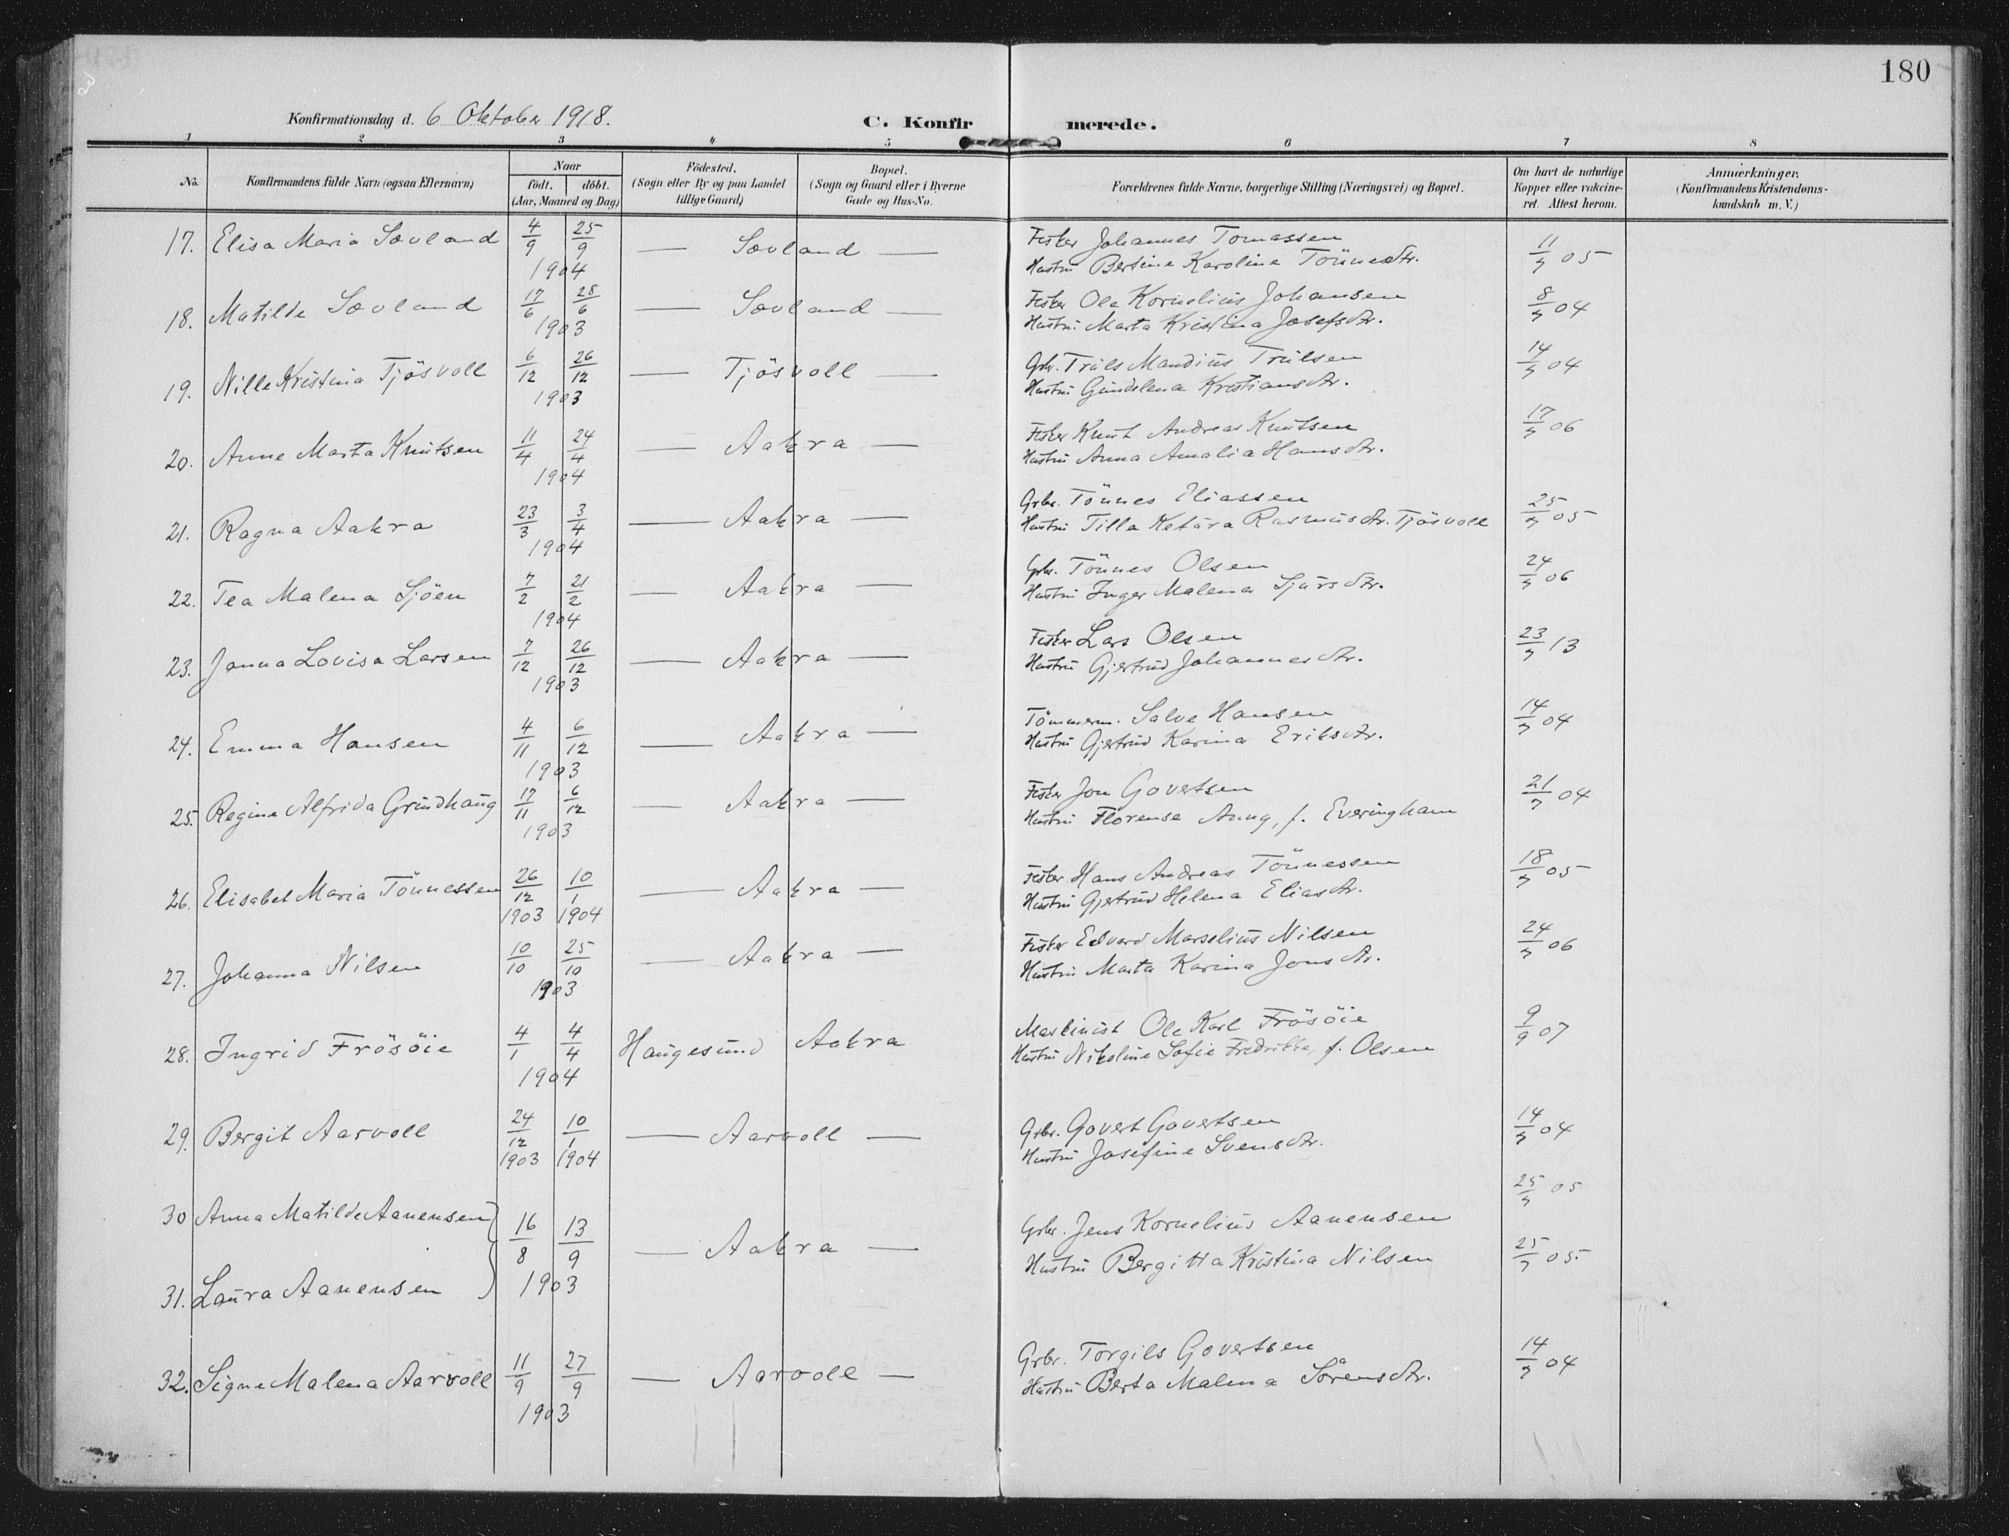 180
Konfirmationsdag d. 6 Oktober 1918. C. Konfirmerede.
1 2 3 4 5 6 7 8
No. Konfirmandens fulde Navn (ogsaa Efternavn) Naar født. døbt. (Aar, Maaned og Dag) Fødested. (Sogn eller By og paa Landet tillige Gaard) Bopæl. (Sogn og Gaard eller i Byerne Gade og Hus-No. Forældrenes fulde Navne, borgerlige Stilling (Næringsvei) og Bopæl. Om havt de naturlige Kopper eller vakcineret. Attest herom. Anmærkninger. (Konfirmandens Kristendomskundskab m. V.)
17. Elisa Maria Sævland 4/9 25/9 1904 — Sævland — Fisker Johannes Tomassen 11/7 05
Hustru Bertine Karoline Tönnesdtr.
18. Matilde Sævland 17/6 28/6 1903 — Sævland — Fisker Ole Kornelius Johansen 8/7 04
Hustru Marta Kristina Josefsdtr.
19. Nille Kristina Tjösvoll 6/12 26/12 1903 — Tjösvoll — Gbr. Truls Mandius Trulsen 14/7 04
Hustru Gundelena Kristiansdtr.
20. Anne Marta Knutsen 11/4 24/4 1904 — Aakra — Fisker Knut Andreas Knutsen 17/7 06
Hustru Anna Amalia Hansdtr.
21. Ragna Aakra 23/3 3/4 1904 — Aakra — Grbr. Tönnes Eliassen 25/7 05
Hustru Tilla Ketura Rasmusdtr. Tjösvoll
22. Tea Malena Sjöen 7/2 21/2 1904 — Aakra — Gbr. Tönnes Olsen 24/7 06
Hustru Inger Malena Sjursdtr.
23. Janna Lovisa Larsen 7/12 26/12 1903 — Aakra — Fisker Lars Olsen 23/7 13
Hustru Gjertrud Johannesdtr.
24. Emma Hansen 4/11 6/12 1903 — Aakra — Tömmerm. Salve Hansen 14/7 04
Hustru Gjertrud Karina Eriksdtr.
25. Regine Alfrida Grindhaug 17/11 6/12 1903 — Aakra — Fisker Jon Govertsen 21/7 04
Hustru Florense Anny, f. Everingham
26. Elisabet Maria Tönnessen 26/12 1903 10/1 1904 — Aakra — Fisker Hans Andreas Tönnessen 18/7 05
Hustru Gjertrud Helena Eliasdtr.
27. Johanna Nilsen 10/10 25/10 1903 — Aakra — Fisker Edvard Marselius Nilsen 24/7 06
Hustru Marta Karina Jonsdtr.
28. Ingrid Frösöie 4/1 4/4 1904 Haugesund Aakra Maskinist Ole Karl Frösöie 9/9 07
Hustru Nikoline Sofie Fredrikke, f. Olsen
29. Bergit Aarvoll 24/12 1903 10/1 1904 — Aarvoll — Grbr. Govert Govertsen 14/7 04
Hustru Josefine Svensdtr.
30 Anna Matilde Aanensen 16/8 13/9 1903 — Aakra — Grbr. Jens Kornelius Aanensen 25/7 05
31. Laura Aanensen Hustru Bergitta Kristina Nilsen 25/7 05
32. Signe Malena Aarvoll 11/9 27/9 1903 — Aarvoll — Grbr. Torgils Govertsen 14/7 04
Hustru Berta Malena Sörensdtr.